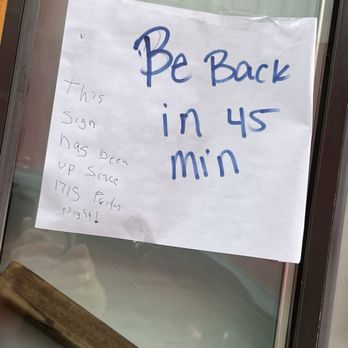 Be Back
in 45
min
This
Sign
has been
up since
1715 Friday
night!